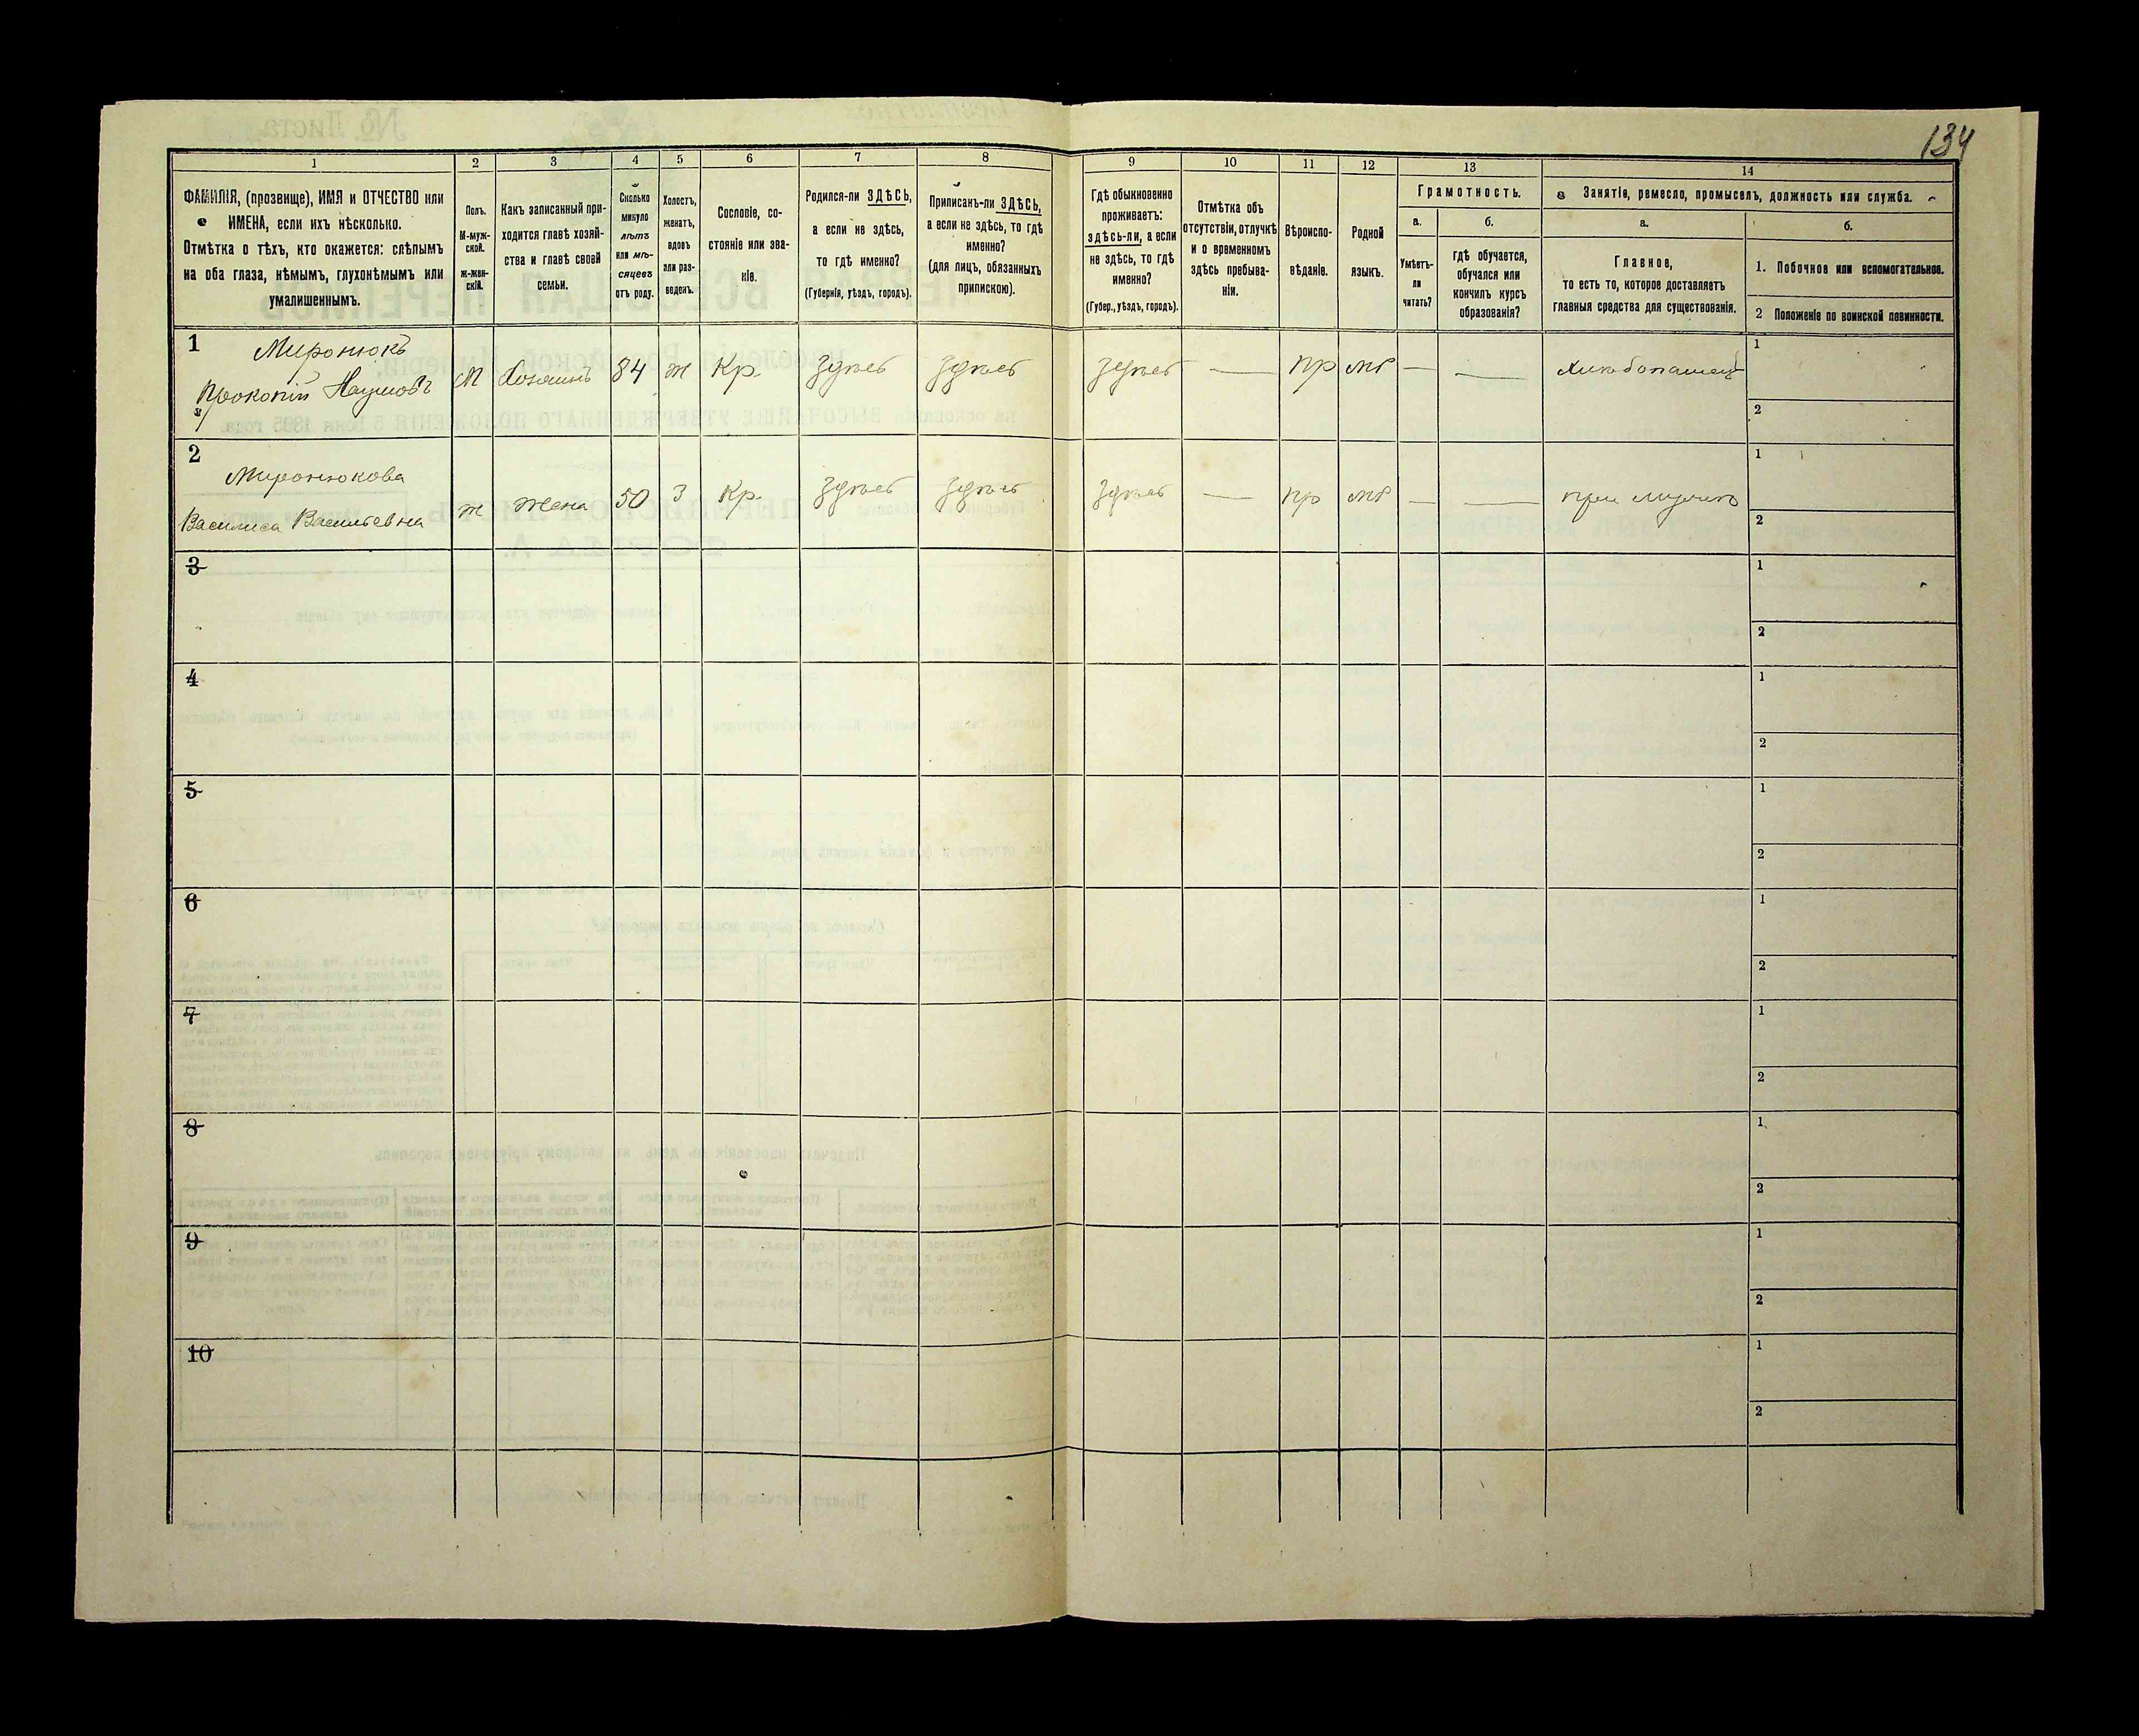 134
1
2
3
4
5
6
7
8
9
10
11
12
13
14
ФАМИЛІЯ, (прозвище), ИМЯ и ОТЧЕСТВО или
ИМЕНА, если ихъ нѣсколько.
Отмѣтка о тѣхъ, кто окажется: слѣпымъ
на оба глаза, нѣмымъ, глухонѣмымъ или
умалишеннымъ.
Полъ.
М-муж-
ской.
ж-жен-
скій.
Какъ записанный при-
ходится главѣ хозяй-
ства и главѣ своей
семьи.
Сколько
минуло
лѣтъ
или мѣ-
сяцевъ
отъ роду.
Холостъ,
женатъ,
вдовъ
или раз-
веденъ.
Сословіе, со-
стояніе или зва-
ніе.
Родился-ли ЗДѢСЬ,
а если не здѣсь,
то гдѣ именно?
(Губернія, уѣздъ, городъ).
Приписанъ-ли ЗДѢСЬ,
а если не здѣсь, то гдѣ
именно?
(для лицъ, обязанныхъ
припискою).
Гдѣ обыкновенно
проживаетъ:
здѣсь-ли, а если
не здѣсь, то гдѣ
именно?
(Губер., уѣздъ, городъ).
Отмѣтка объ
отсутствіи, отлучкѣ
и о временномъ
здѣсь пребыва-
ніи.
Вѣроиспо-
вѣданіе.
Родной
языкъ.
Грамотность.
а.
Умѣетъ-
ли
читать?
б.
гдѣ обучается,
обучался или
кончилъ курсъ
образованія?
Занятіе, ремесло, промыселъ, должность или служба.
а.
Главное,
то есть то, которое доставляетъ
главныя средства для существованія.
б.
1. Побочное или вспомогательное.
2 Положеніе по воинской повинности.
1 Миронюкъ
Прокопій Наумовъ М Хозяинъ 84 ж Кр. Здѣсь Здѣсь Здѣсь — пр мр — — Хлѣбопашецъ 1
2
2 Миронюкова
Василиса Васильевна ж жена 50 З Кр. Здѣсь Здѣсь Здѣсь — пр мр — — при мужѣ 1
2
3 1
2
4 1
2
5 1
2
6 1
2
7 1
2
8 1
2
9 1
2
10 1
2